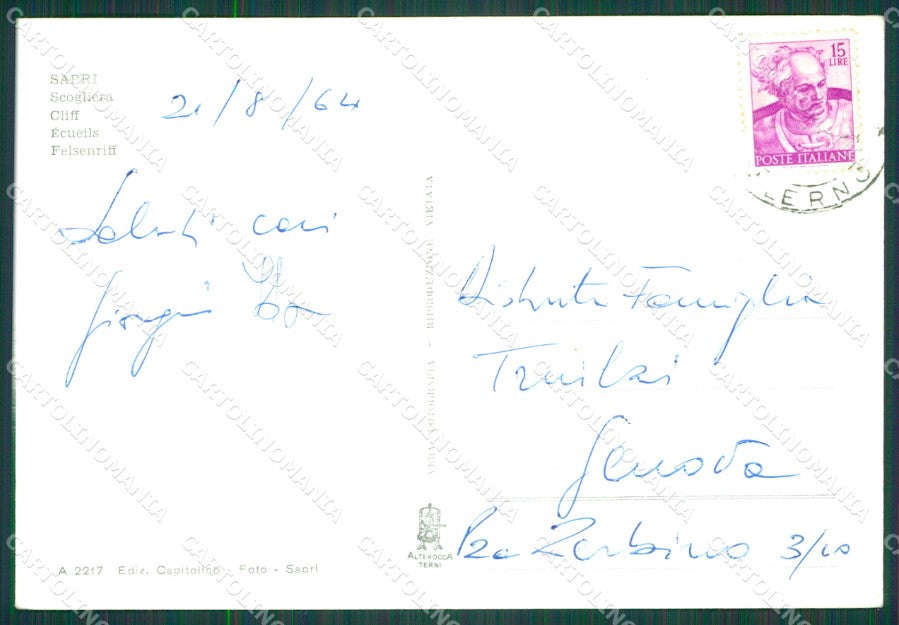 SAPRI
Scogliera
Cliff
Écueils
Felsenriff
21/8/64
Saluti cari
15
LIRE
POSTE ITALIANE
LERNO
Distinta Famiglia
Genova
Pza Zerbino 3/10
VERA FOTOGRAFIA - RIPRODUZIONE VIETATA
ALTEROCCA
TERNI
A 2217 Ediz. Capitolino - Foto - Sapri
CARTOLINOMANIA